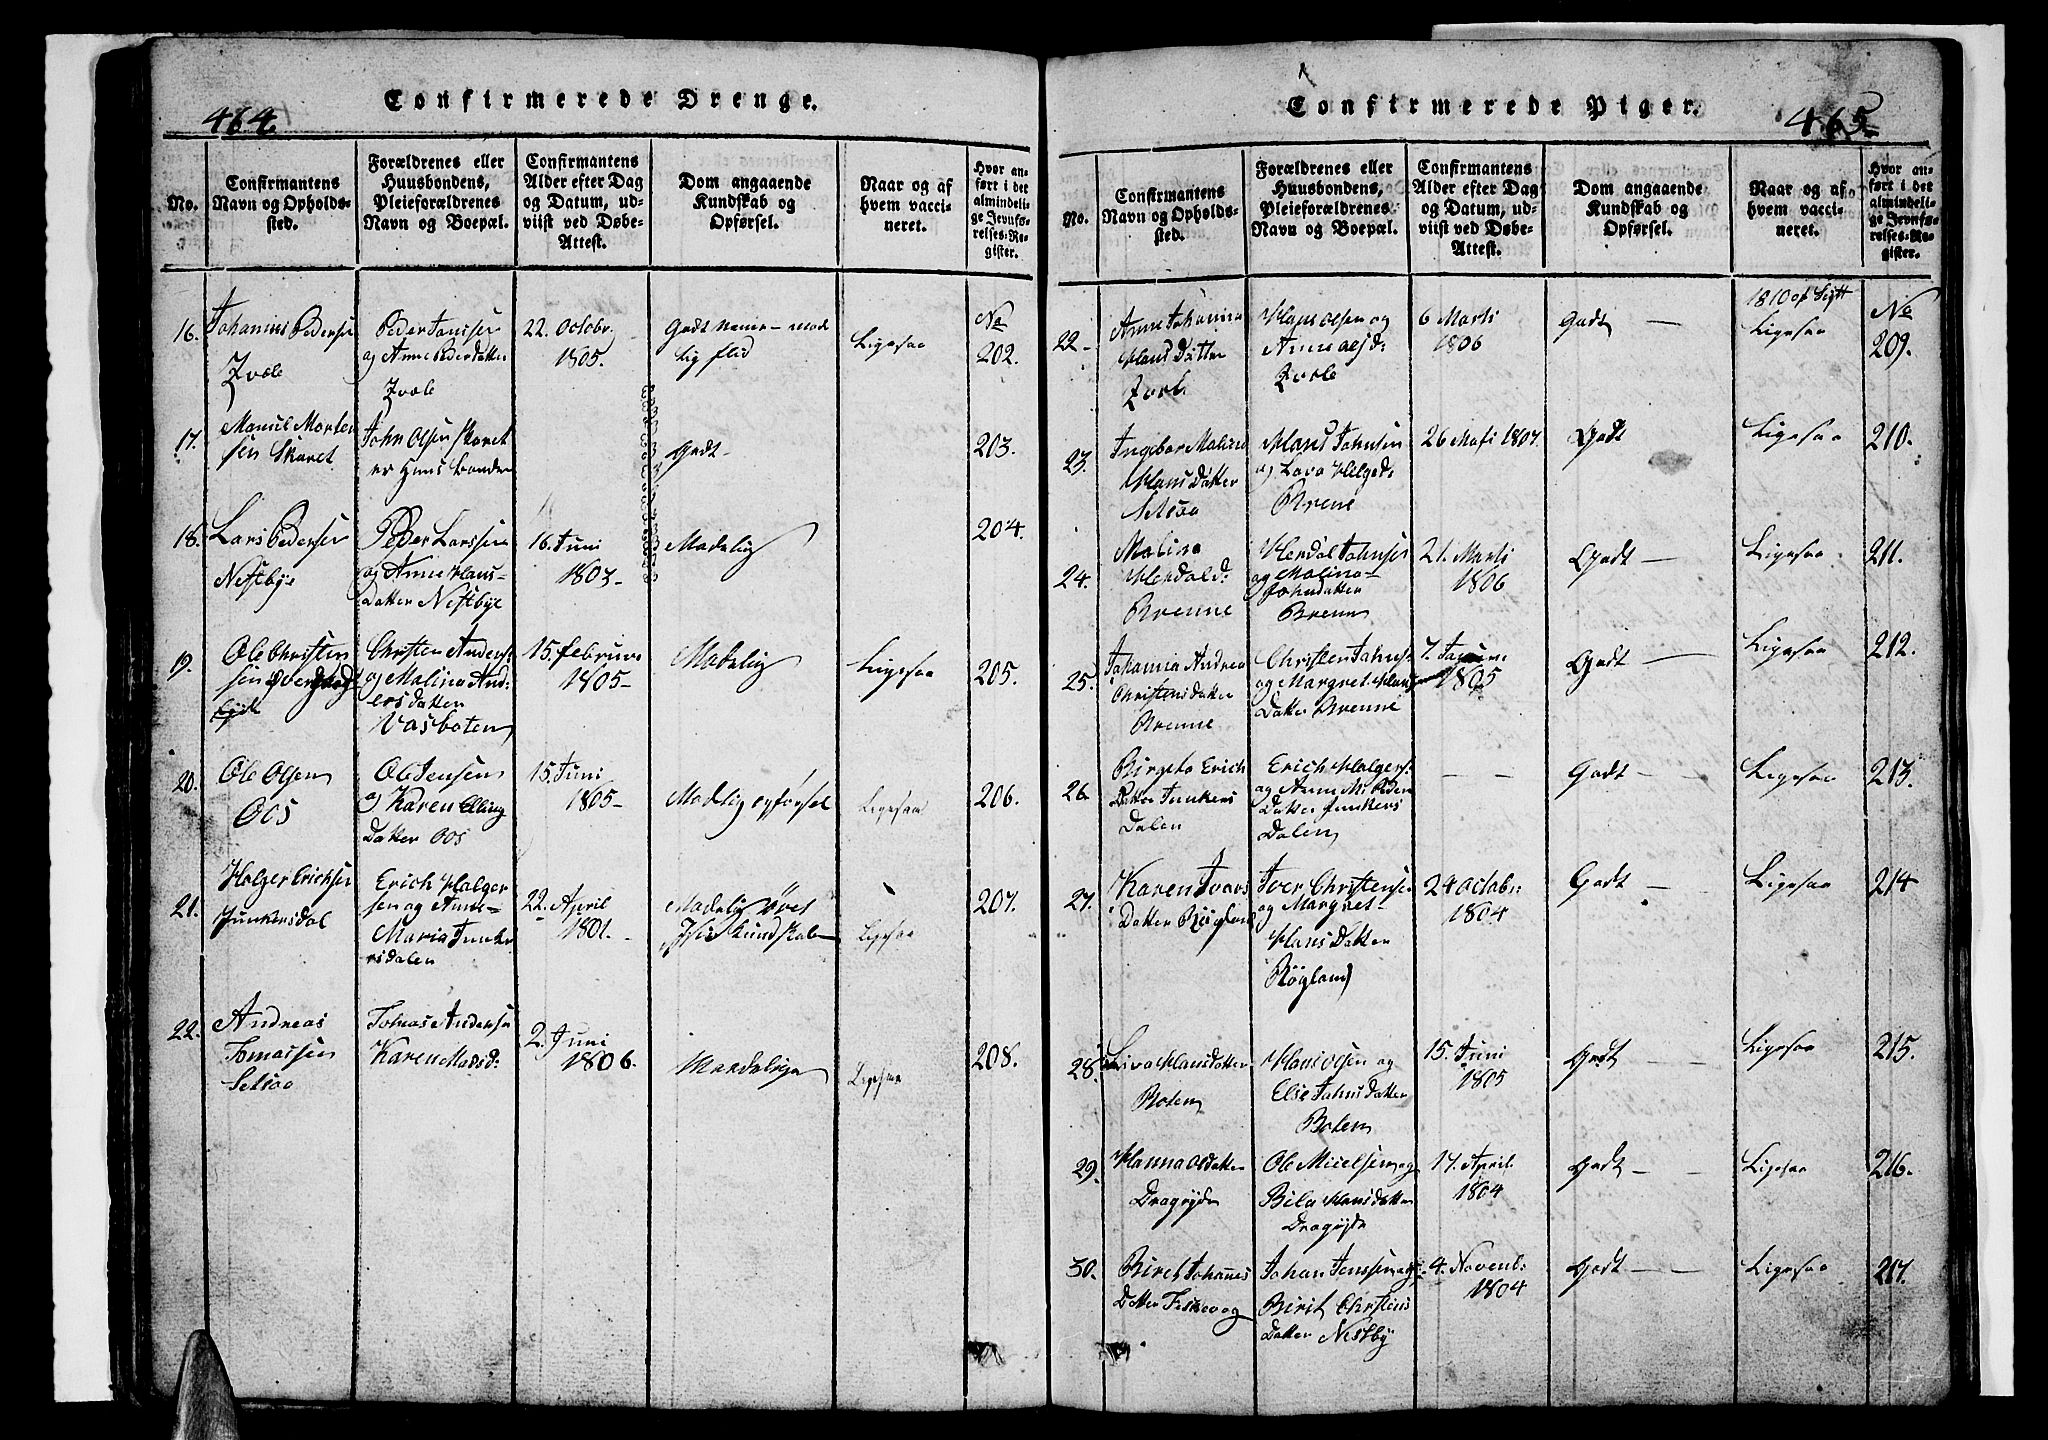 464.
Confirmerede Drenge.
No.
Confirmantens
Navn og Opholds-
sted.
Forældrenes eller
Huusbondens,
Pleieforældrenes
Navn og Boepæl.
Confirmantens
Alder efter Dag
og Datum, ud-
viist ved Døbe-
Attest.
Dom angaaende
Kundskab og
Opførsel.
Naar og af
hvem vacci-
neret.
Hvor an-
ført i det
almindeli-
ge Jevnfø-
relses-Re-
gister.
16.
Johannis Pedersen
Peder
og Anne Pedersdatter
22. Octobr.
1805.
Godt
lig flid
Ligesaa
No
202.
17.
Morten
sen Skaret
John Olsen Skaret
er Huus bonden
Godt
203.
18.
Lars Pedersen
Nestbye
Peder Larssen
og Anne Hans
Datter Nestbye
16. Juni
1803
Madelig
204.
19.
Ole Christen
sen
Christen Anders:
og Malina And
ersdatter
Vasboten
15. februar
1805
Madelig
Ligesaa
205.
20.
Ole Olsen
Oos
Ole Jensen
og Karen Elling
Datter Oos
15. Juni
1805
Madelig opførsel
Ligesaa
206.
21.
Holger Ericksen
Junkersdal
Erich Holger
sen og Anne
Maria Junke
rsdalen
22. April
1801.
Madelig
Kundskab
Ligesaa
207.
22.
Andreas
Tomassen
Setsaa
Tomas Andersen
Karen Madsd:
2. Juni
1806.
Maadelig
Ligesaa
208.
Confirmerede Piger.
465
No.
Confirmantens
Navn og Opholds-
sted.
Forældrenes eller
Huusbondens,
Pleieforældrenes
Navn og Boepæl.
Confirmantens
Alder efter Dag
og Datum, ud-
viist ved Døbe-
Attest.
Dom angaaende
Kundskab og
Opførsel.
Naar og af
hvem vacci-
neret.
Hvor an-
ført i det
almindeli-
ge Jevnfø-
relses-Re-
gister.
22
Anne Johanna
Hans Datter
Hans Olsen og
Anne
6 Marti
1806
Godt
1810 af
Ligesaa
No
209.
23.
Ingebor Malina
Hans Datter
Setsaa
Hans Johnsen
og Lava Helged:
Brene
26 1807.
Godt
Ligesaa
210.
24.
Malina
Herdald:
Brenne
Herdal Johnsen
og Malina
Johndatter
Brenn
21. Marti
1806
Godt
Ligesaa
211.
25.
Johanna Andrea
Christensdatter
Brenne
Christen Johns:
og Margret Hans
Datter Brenne
7. Januar
1805
Godt
Ligesaa
212.
26.
Birgeta Erich
Datter Junkers
Dalen
Erich Holgers:
og Anne M: Peder
Datter Junkers
Dalen
Godt
Ligesaa
213.
27.
Karen Ivars
Datter Røgland
Iver Christense
og Margret
Hans Datter
Røgland
24 Octobr:
1804
Godt
Ligesaa
214
28.
Liva Hansdatter
Boten
Hans Olsen og
Else Johns datter
Boten
15. Juni
1805
Godt
Ligesaa
215.
29.
Hanna Olsdatter
Dragøyde
Ole Micelsen og
Bila Hansdatter
Dragøyde
17. April
1804
Godt
Ligesaa
216.
30.
Biret Johannes
Datter Feskevog
Johan Jenssen og
Birit Christens
Datter Nestby
4. Novemb:
1804
Godt
Ligesaa
217.